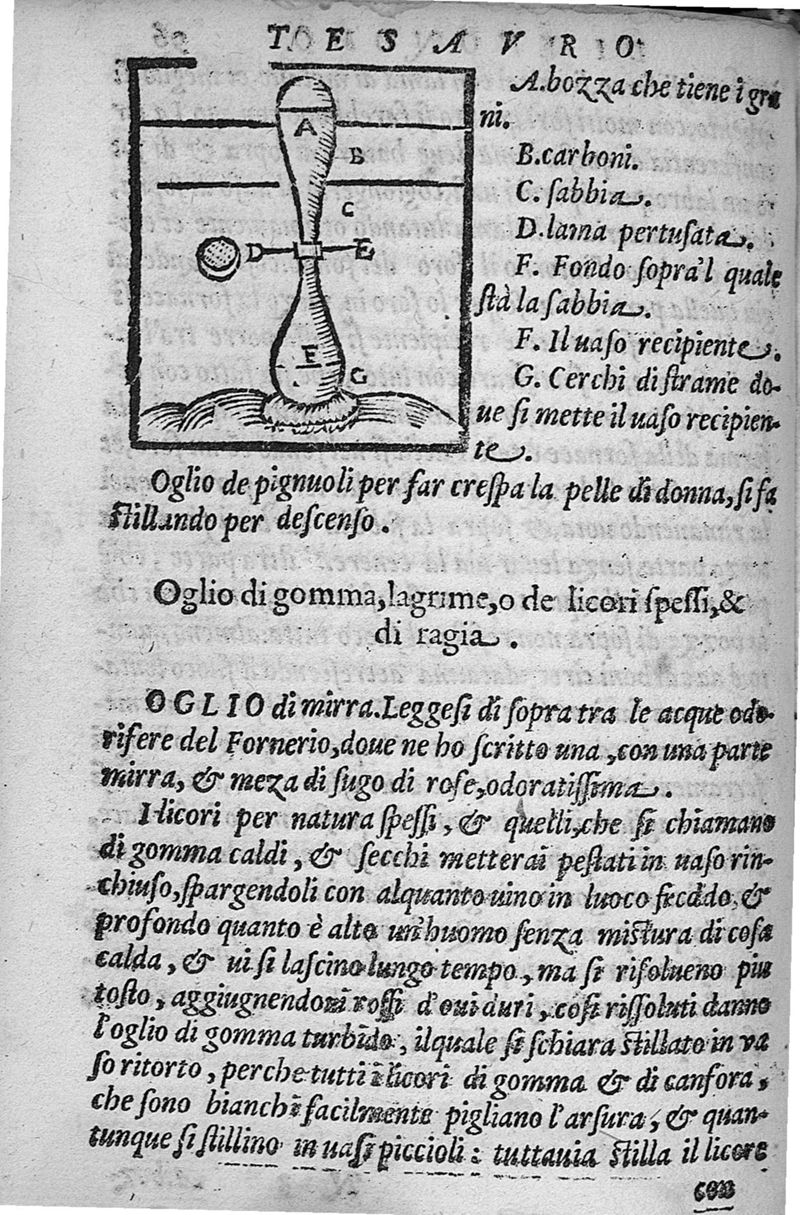 TESAVRO
A
B
C
D
E
E
G
A. bozza che tiene i gra
ni.
B. carboni.
C. sabbia.
D. lama pertusata.
F. Fondo sopra'l quale
stà la sabbia.
F. Il uaso recipiente.
G. Cerchi di strame do-
ue si mette il uaso recipien-
te.
Oglio de pignuoli per far crespa la pelle di donna, si fa
stillando per descenso.
Oglio di gomma, lagrime, o de licori spessi, &
di ragia.
OGLIO di mirra. Leggesi di sopra tra le acque odo-
rifere del Fornerio, doue ne ho scritto una, con una parte
mirra, & meza di sugo di rose, odoratissima.
I licori per natura spessi, & quelli, che si chiamano
di gomma caldi, & secchi metterai pestati in uaso rin-
chiuso, spargendoli con alquanto uino in luoco freddo, &
profondo quanto è alto un'huomo senza mistura di cosa
calda, & ui si lascino lungo tempo, ma si risolueno piu
tosto, aggiugnendoui rossi d'oui duri, cosi rissoluti danno
l'oglio di gomma turbido, ilquale si schiara stillato in va
so ritorto, perche tutti i licori di gomma & di canfora,
che sono bianchi facilmente pigliano l'arsura, & quan-
tunque si stillino in uasi piccioli: tuttauia stilla il licore
con